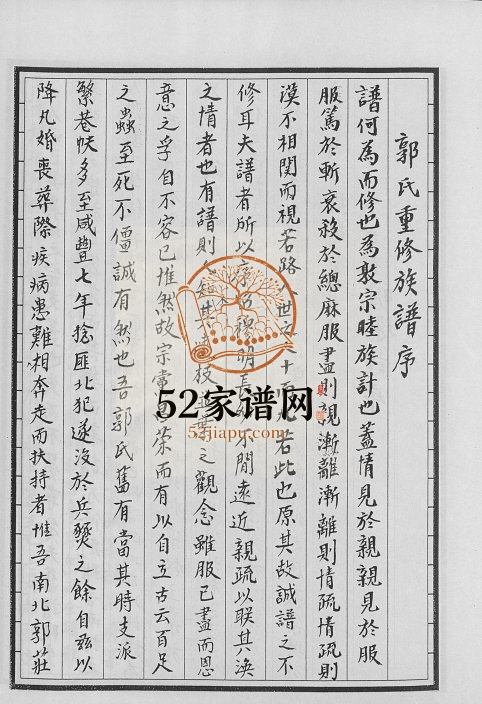 郭氏重修族譜序
譜何為而修也為敦宗睦族計也蓋情見於親親見於服
服篤於斬衰殺於緦麻服盡則親漸離漸離則情疏情疏則
漠不相関而視若路人世之人十而若此也原其故誠譜之不
修耳夫譜者所以序昭穆明長不間遠近親疏以聯其渙
之情者也有譜則枝葉之觀念雖服已盡而恩
意之孚自不容已惟然故宗當榮而有以自立古云百足
之蟲至死不僵誠有然也吾郭氏舊有當其時支派
繁巷帙多至咸豐七年捻匪北犯遂沒於兵燹之餘自茲以
降凡婚喪葬際疾病患難相奔走而扶持者惟吾南北郭莊
52家谱网
52jiapu.com